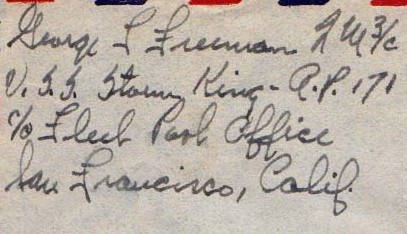 George L Freeman F M 3/c
U.S.S. Storm King - A.P. 171
c/o Fleet Post Office
San Francisco, Calif.